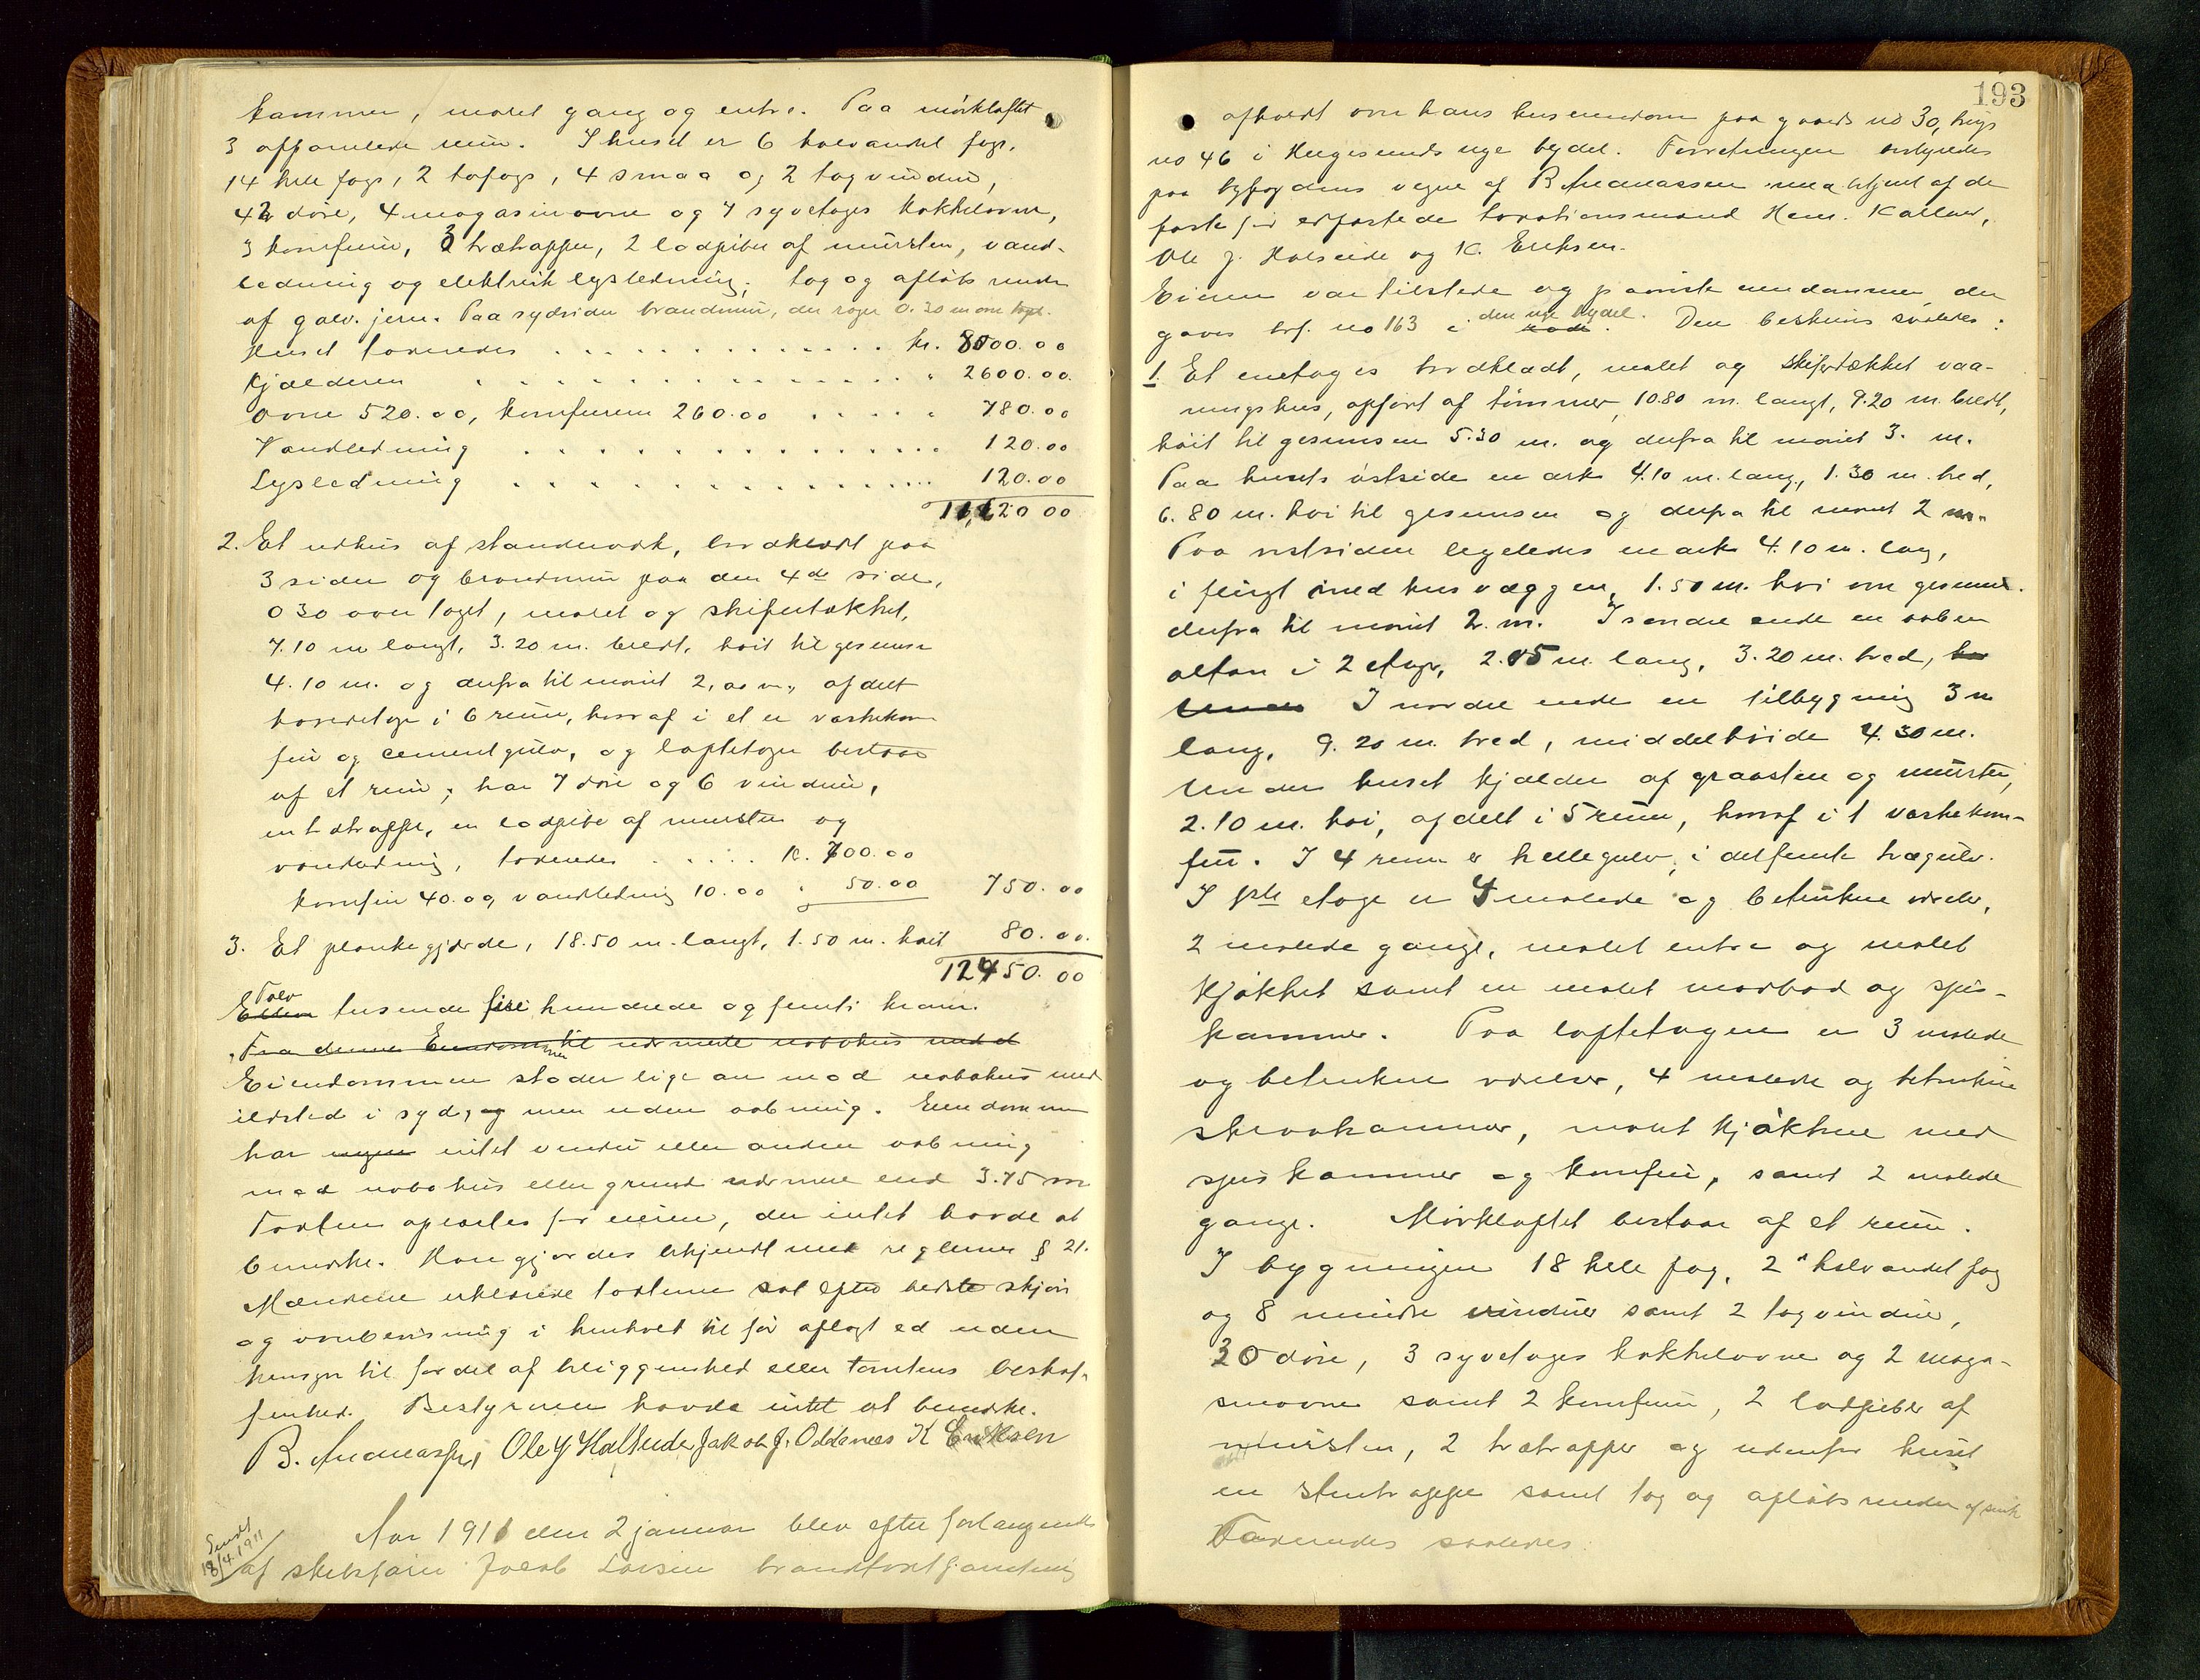 kammer, malet gang og entre. Paa mörkloftet
3 afpanelede rum. I huset er 6 halvandet fags,
14 hele fags, 2 tofags, 4 smaa og 2 tagvinduer,
42 döre, 4 magasinovne og 7 syvetages kakkelovne,
3 komfurer, 3 trætrapper, 2 ladpiber af mursten, vand-
ledning og elektrisk lysledning, tag og afløbsrender
af galv. jern. Paa sydsiden brandmur, der rager 0.30 m over taget.
Huset taxeredes . . . . . kr. 8000.00
Kjælderen . . . . . " 2600.00
Ovne 520.00, komfurerne 260.00 . . . . " 780.00
Vandledning . . . . . 120.00
Lysledning . . . . . 120.00
11,620 00
2. Et udhus af standerværk, bordklædt paa
3 sider og brandmur paa den 4de side,
0 30 over taget, malet og skifertækket,
7.10 m langt, 3.20 m. bredt, höit til gesimsen
4.10 m. og derfra til mønet 2,00 m., afdelt
hovedetage i 6 rum, hvoraf i et er vaskekom-
fur og cementgulv, og loftetagen bestaar
af et rum; har 7 döre og 6 vinduer,
en trætrappe, en ladpibe af mursten og
vandledning, taxeredes . . . . . K. 700.00
komfur 40.00, vandledning 10.00 " 50.00 750.00
3. Et plankegjærde, 18.50 m. langt, 1.50 m. höit 80.00.
12450.00
Tolv
Elleve tusende fire hundrede og femti kroner.
Fra denne Eiendom til nærmeste nabohus med et
Eiendommen støder lige an mod nabohus med
ildsted i syd, og men uden aabning. Eiendommen
har ingen intet vindu eller anden aabning
mod nabohus eller grund nærmere end 3.75 m
Taxten oplæstes for eieren, der intet havde at
bemerke. Han gjordes bekjendt med reglernes § 21.
Mændene erklærede taxterne sat efter bedste skjön
og overbevisning i henhold til för aflagt ed uden
hensyn til fordel af beliggenhed eller tomtens beskaf-
fenhed. Bestyreren havde intet at bemerke.
B. Andreassen, Ole J Halseide Jakob J. Oddenes K Eriksen
Sendt
18/4 1911
Aar 1911 den 2 januar blev efter forlangende
af skibsfører Jacob Larsen brandtaxtforretning
193
afholdt over hans huseiendom paa gaards no 30, brugs
no 46 i Haugesunds nye bydel. Forretningen bestyredes
paa byfogdens vegne af B Andreassen med betjent af de
faste for edfæstede taxationsmænd Hem. Kallevr,
Ole J. Halseide og K. Eriksen.
Eieren var tilstede og paaviste eiendommen, der
gaves brf. no 163 i den nye bydel. Den beskrives saaledes:
1. Et enetages bordklædt, malet og skifertækket vaa-
ningshus, opført af tömmer, 10.80 m. langt, 9.20 m. bredt,
höit til gesimsen 5.30 m. og derfra til mönet 3. m.
Paa husets östside en ark 4.10 m. lang, 1.30 m. bred,
6.80 m. höi til gesimsen og derfra til mønet 2 m.
Paa vestsiden ligeledes en ark 4.10 m. lang,
i flugt med husvæggen, 1.50 m. höi over gesimsen.
derfra til mönet 2. m. I søndre ende en aaben
altan i 2 etager, 2.05 m. lang, 3.20 m. bred,
I nordre ende en tilbygning 3 m
lang, 9.20 m. bred, middelhöide 4.30 m.
Under huset kjælder af graasten og mursten,
2.10 m. höi, afdelt i 5 rum, hvoraf i 1 vaskekom-
fur. I 4 rum er hellegulv, i det femte trægulv.
I 1ste etage er 4 malede og betrukne værelser,
2 malede gange, malet entre og malet
kjøkken samt en malet madbod og spis-
kammer. Paa loftetagen er 3 malede
og betrukne værelser, 4 malede og betrukne
skraakammer, malet kjøkken med
spiskammer og komfur, samt 2 malede
gange. Mörkloftet bestaar af et rum.
I bygningen 18 hele fag, 2 halvandet fag
og 8 mindre vinduer samt 2 tagvinduer,
30 döre, 3 syvetages kakkelovne og 2 maga-
sinovne samt 2 komfurer, 2 ladpiber af
mursten, 2 trætrapper og udenfor huset
en stentrappe samt tag og afløbsrender af sink
Taxeredes saaledes: